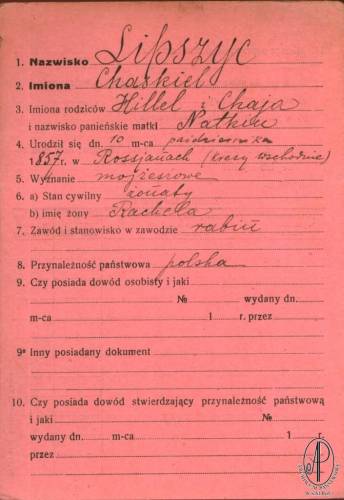 1. Nazwisko Lipszyc
2. Imiona Chaskiel
3. Imiona rodziców Hillel i Chaja
i nazwisko panieńskie matki Natkin
4. Urodził się dn. 10 m-ca października
1857 r. w Rossjanach (kresy wschodnie)
5. Wyznanie mojżeszowe
6. a) Stan cywilny żonaty
b) imię żony Rachela
7. Zawód i stanowisko w zawodzie rabin
8. Przynależność państwowa polska
9. Czy posiada dowód osobisty i jaki
№ wydany dn.
m-ca 1 r. przez
9a Inny posiadany dokument
10. Czy posiada dowód stwierdzający przynależność państwową
i jaki №
wydany dn. m-ca 1 r.
przez